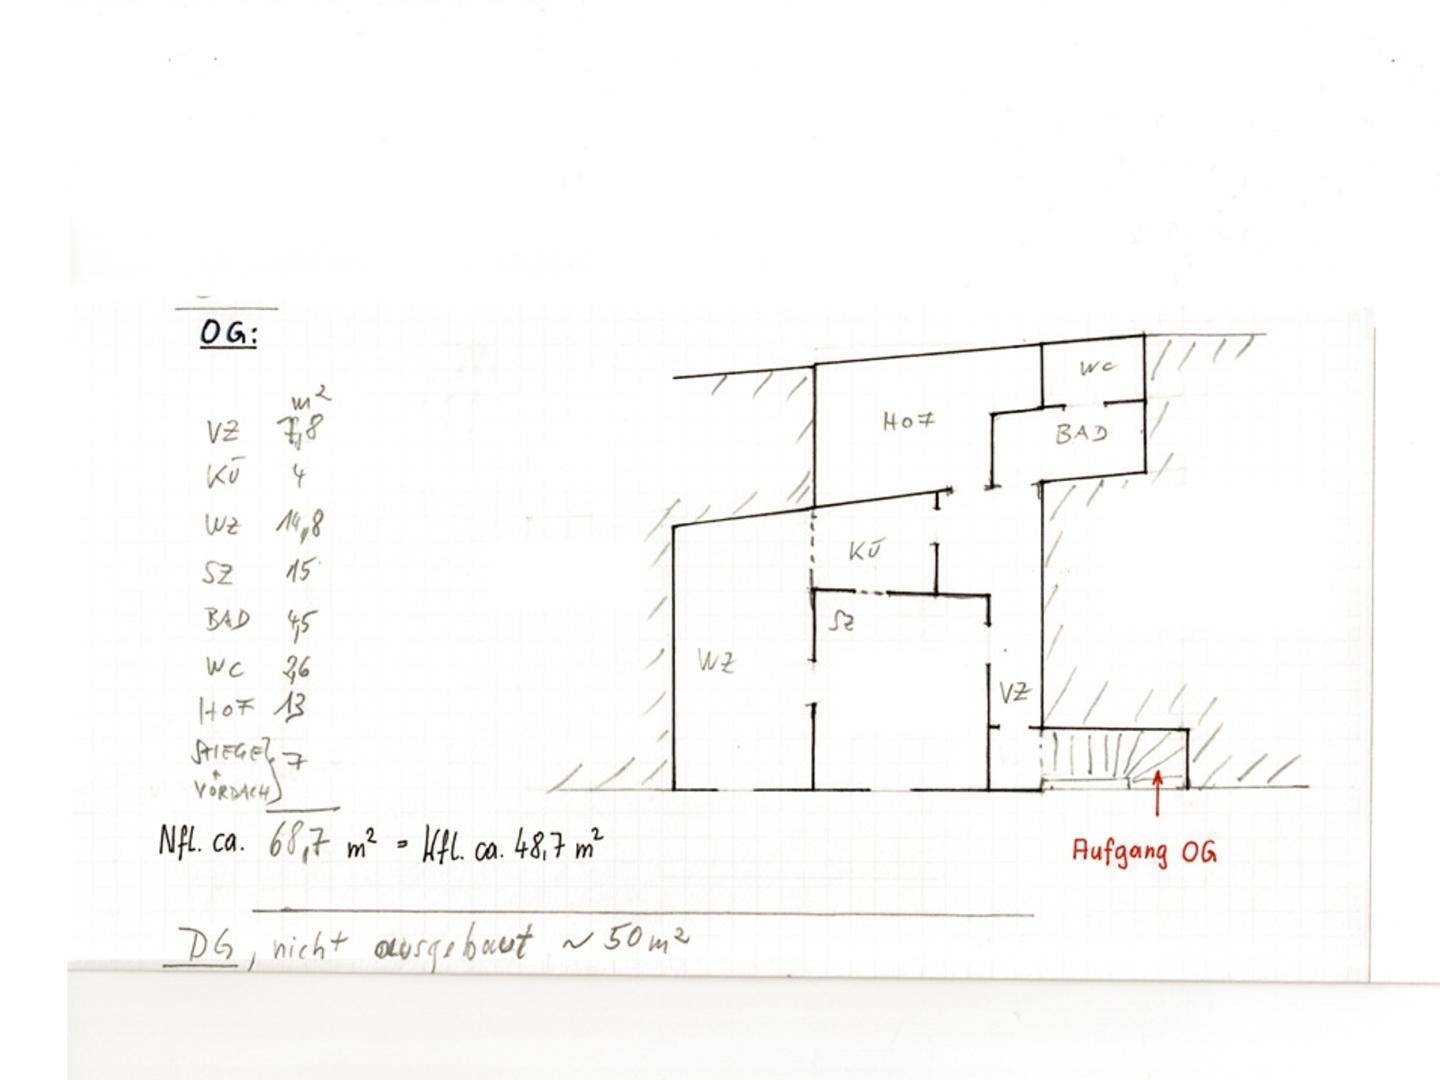 OG:
m²
VZ 7,8
KÜ 4
WZ 14,8
SZ 15
BAD 4,5
WC 2,6
HOF 13
STIEGE +
VORDACH 7
Nfl. ca. 68,7 m² = Wfl. ca. 48,7 m²
DG, nicht ausgebaut ~ 50 m²
WC
HOF
BAD
KÜ
SZ
WZ
VZ
Aufgang OG